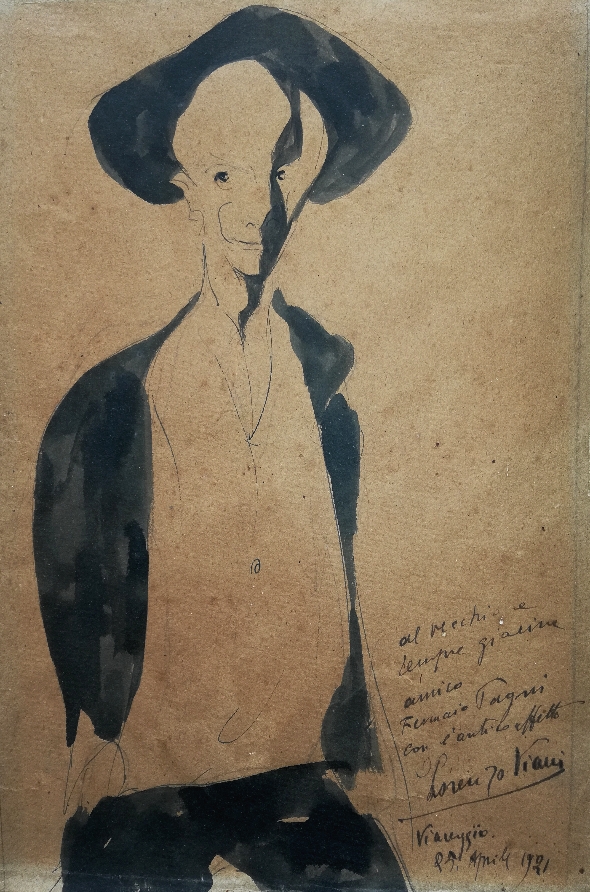 al vecchio e
sempre giovine
amico
Tagni
con l'antico affetto
Lorenzo Viani
Viareggio.
29. Aprile 1921